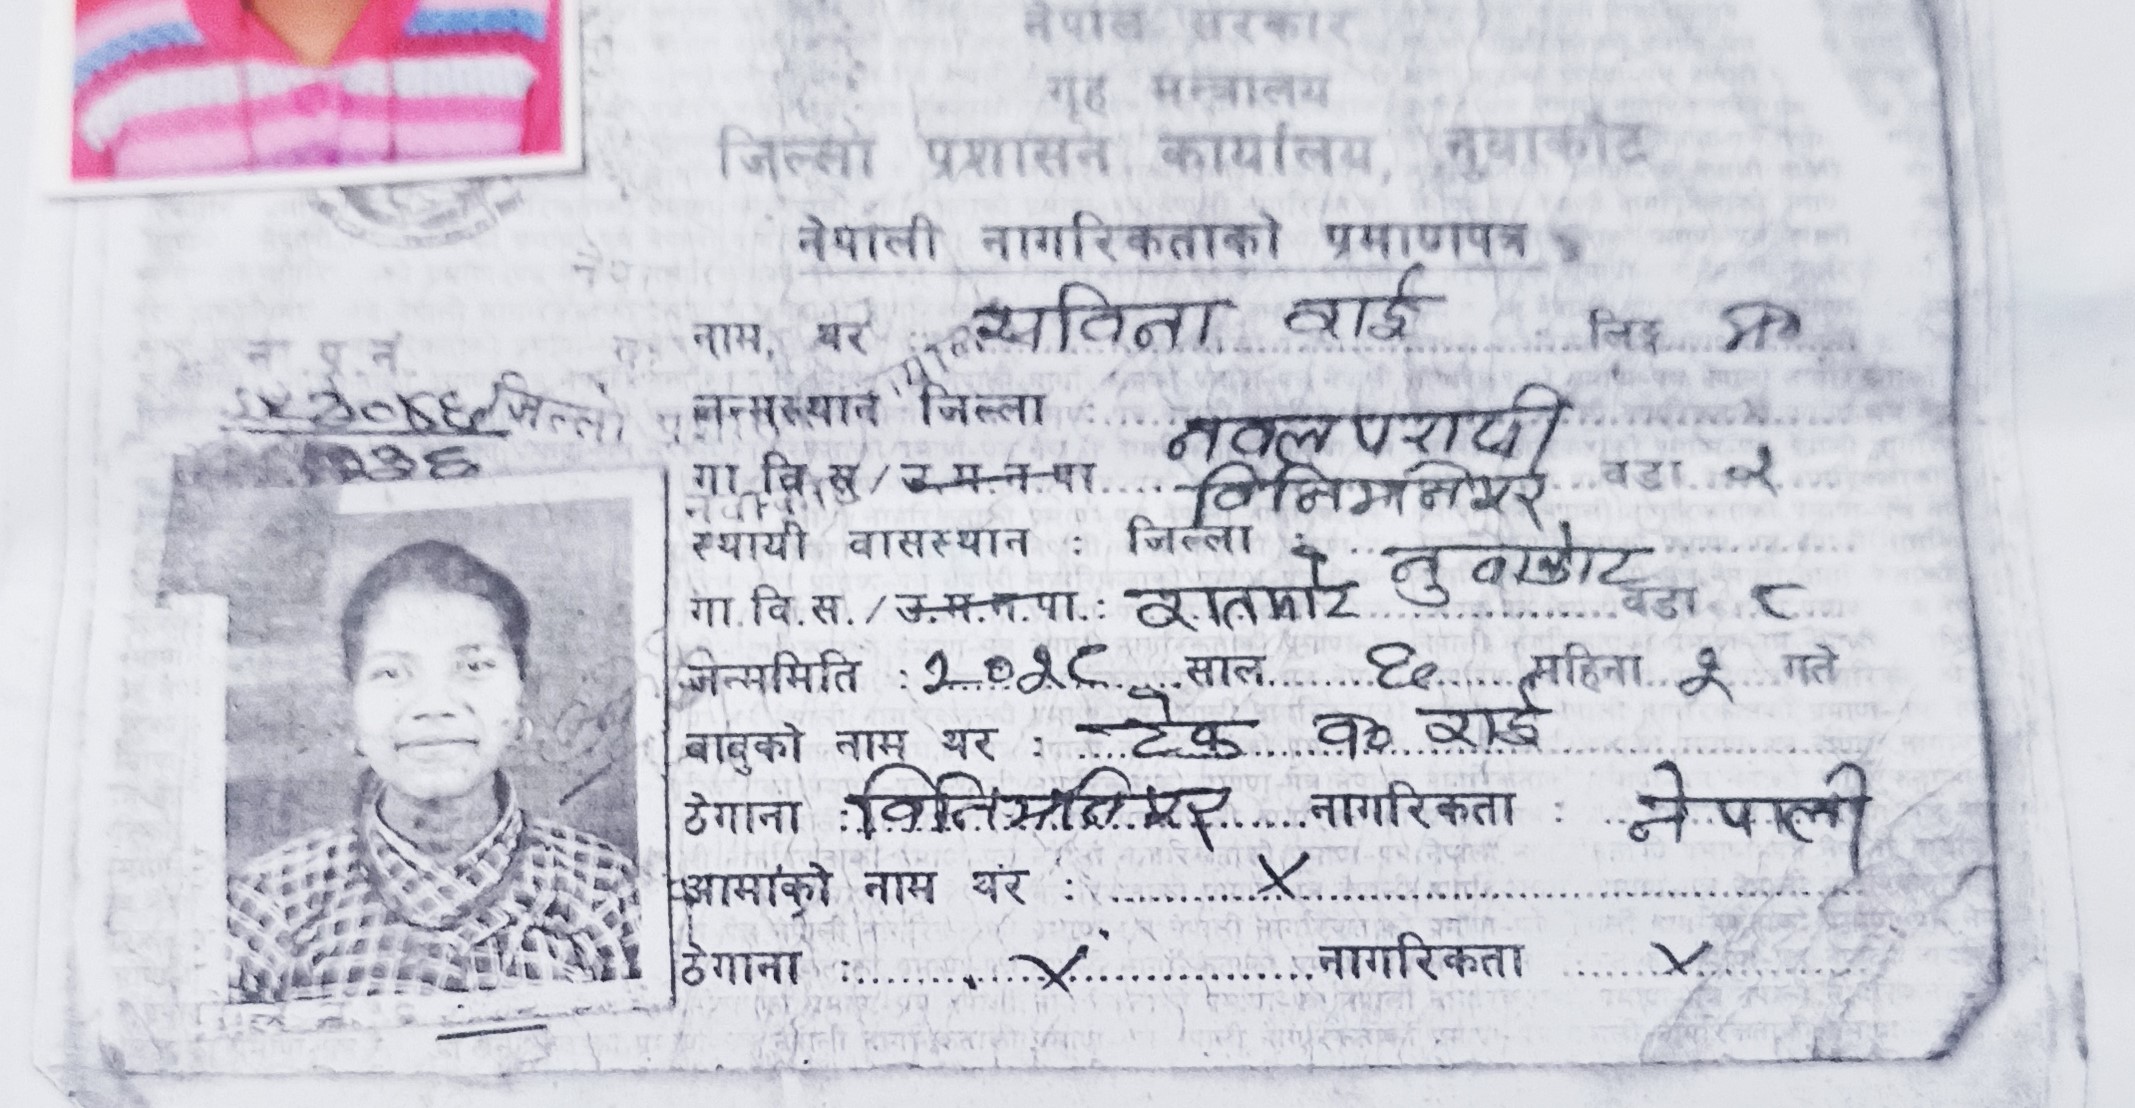 नेपाल सरकार
गृह मन्त्रालय
जिल्ला प्रशासन कार्यालय, नुवाकोट
नेपाली नागरिकताको प्रमाणपत्र
ना प्र न
नाम, थर : सविना राई लिङ्ग म०
जन्मस्थान जिल्ला : नवलपरासी
गा.वि.स/उ.म.न.पा. वडा २
स्थायी वासस्थान : जिल्ला : नुवाकोट
गा.वि.स./उ.म.न.पा.: रातमाटे वडा ८
जन्ममिति : २०२८ साल १० महिना २ गते
बाबुको नाम थर : टेक व० राई
ठेगाना : नागरिकता : नेपाली
आमाको नाम थर : X
ठेगाना : X नागरिकता X